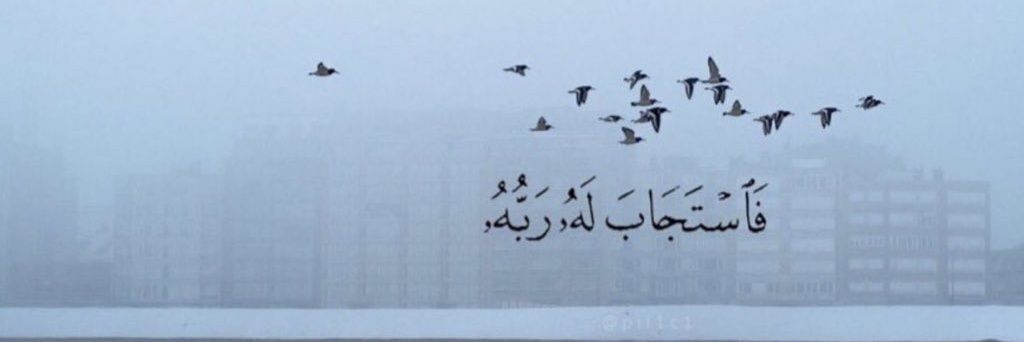 فَٱسْتَجَابَ لَهُۥ رَبُّهُۥ
@pil1c1